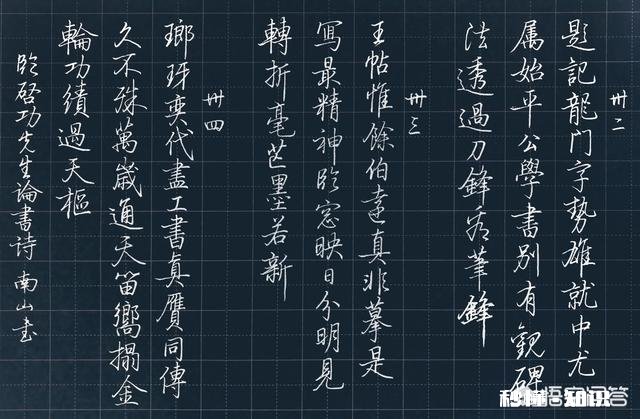 卅二
題記龍门字勢雄就中尤
属始平公學書別有觀碑
法透過刀鋒看筆鋒
卅三
王帖惟餘伯遠真非摹是
寫最精神臨窓映日分明見
轉折毫芒墨若新
卅四
瑯玡奕代盡工書真贋同傳
久不殊萬歲通天留嚮搨金
輪功績過天樞
臨啓功先生論書詩 南山書
悟空问答
秒懂知识